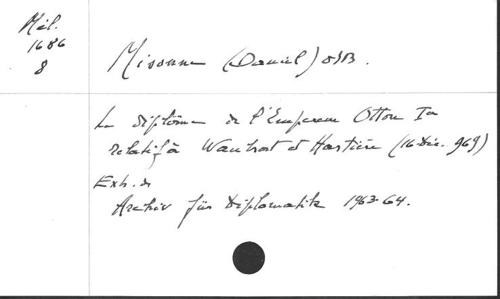 Mél.
1686
8
Misonne (Daniel) OSB.
Le diplôme de l'Empereur Otton Ier
relatif à Waulsort et Hastière (16 Déc. 969)
Extr. de
Archiv für Diplomatik 1963-64.